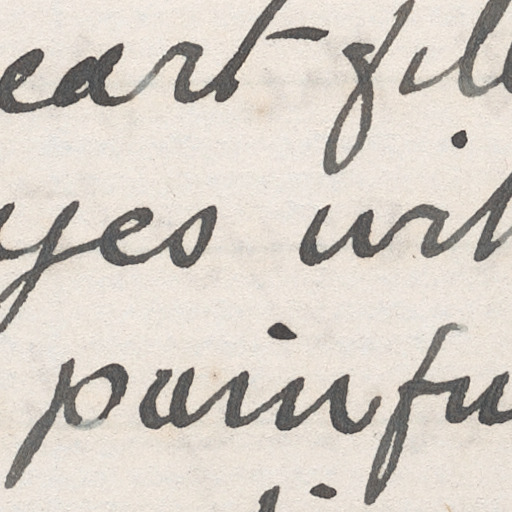 eart fill
yes wit
painfu